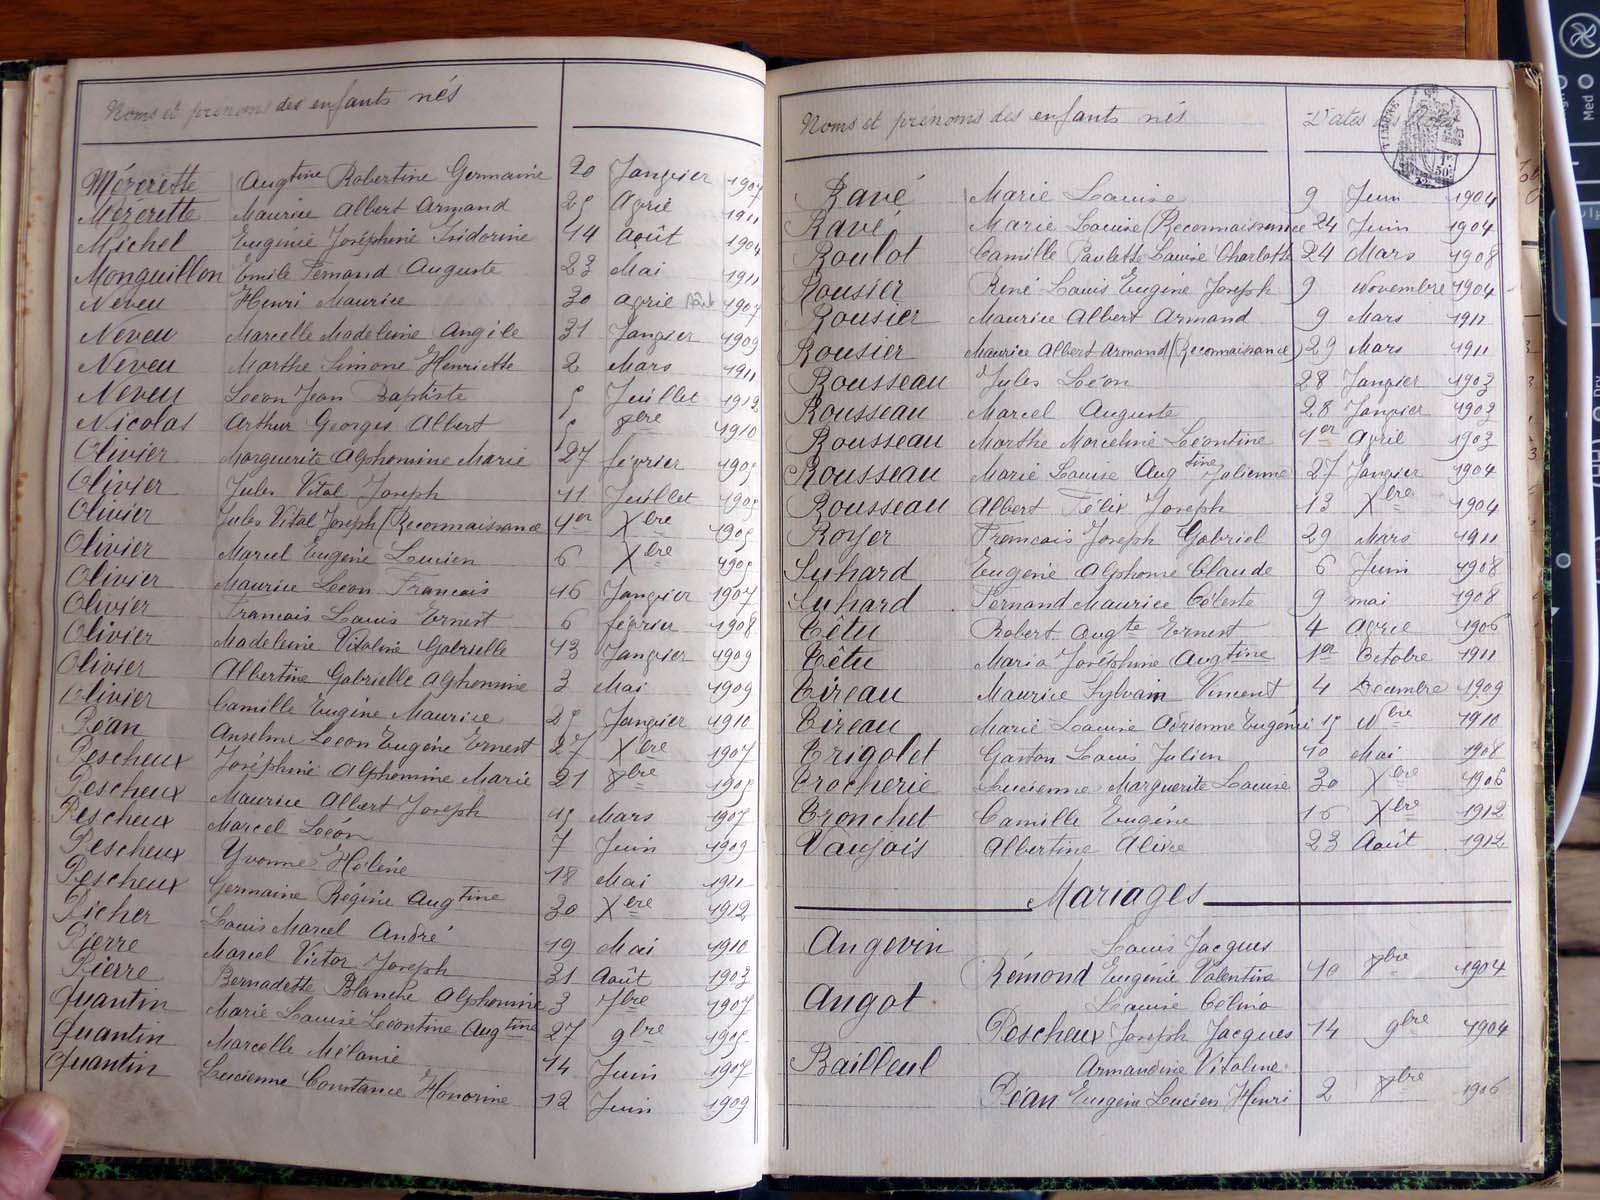 Noms et prénoms des enfants nés
Mézerette Augtine Robertine Germaine 20 Janvier 1907
Mézerette Maurice Albert Armand 25 Avril 1911
Michel Eugénie Joséphine Isidorine 14 Août 1904
Monguillon Emile Fernand Auguste 23 Mai 1911
Neveu Henri Maurice 30 Avril 1907
Neveu Marcelle Madeleine Angèle 31 Janvier 1909
Neveu Marthe Simone Henriette 2 Mars 1911
Neveu Léon Jean Baptiste 5 Juillet 1912
Nicolas Arthur Georges Albert 5 8bre 1910
Olivier Marguerite Alphonsine Marie 27 février 1905
Olivier Jules Vital Joseph 11 Juillet 1905
Olivier Jules Vital Joseph (Reconnaissance 1er Xbre 1905
Olivier Marcel Eugène Lucien 6 Xbre 1905
Olivier Maurice Léon Francois 16 Janvier 1907
Olivier Francois Louis Ernest 6 février 1908
Olivier Madeleine Vitaline Gabrielle 13 Janvier 1909
Olivier Albertine Gabrielle Alphonsine 3 Mai 1909
Olivier Camille Eugène Maurice 25 Janvier 1910
Péan Anselme Léon Eugène Ernest 27 Xbre 1907
Pescheux Joséphine Alphonsine Marie 21 8bre 1905
Pescheux Maurice Albert Joseph 15 Mars 1907
Pescheux Marcel Léon 7 Juin 1909
Pescheux Yvonne Hélène 18 Mai 1911
Pescheux Germaine Régine Augtine 30 Xbre 1912
Picher Louis Marcel André 19 Mai 1910
Pierre Marcel Victor Joseph 31 Août 1903
Pierre Bernadette Blanche Alphonsine 3 7bre 1907
Quantin Marie Louise Léontine Augtine 27 9bre 1905
Quantin Marcelle Mélanie 14 Juin 1907
Quantin Lucienne Constance Honorine 12 Juin 1909
Noms et prénoms des enfants nés Dates
TIMBRE
Ravé Marie Louise 9 Juin 1904
Ravé Marie Louise (Reconnaissance 24 Juin 1904
Roulot Camille Paulette Louise Charlotte 24 Mars 1908
Rousier René Louis Eugène Joseph 9 Novembre 1904
Rousier Maurice Albert Armand 9 Mars 1911
Rousier Maurice Albert Armand (Reconnaissance) 29 Mars 1911
Rousseau Jules Léon 28 Janvier 1903
Rousseau Marcel Auguste 28 Janvier 1903
Rousseau Marthe Marceline Léontine 1er Avril 1903
Rousseau Marie Louise Augtine Julienne 27 Janvier 1904
Rousseau Albert Félix Joseph 13 Xbre 1904
Royer Francois Joseph Gabriel 29 Mars 1911
Suhard Eugène Alphonse Claude 6 Juin 1908
Suhard Fernand Maurice Céleste 9 mai 1908
Têtu Robert Augte Ernest 4 Avril 1906
Têtu Maria Joséphine Augtine 1er Octobre 1911
Tireau Maurice Sylvain Vincent 4 Décembre 1909
Tireau Marie Louise Adrienne Eugénie 15 Nbre 1910
Trigolet Gaston Louis Julien 10 Mai 1908
Trocherie Lucienne Marguerite Louise 30 Xbre 1906
Tronchet Camille Eugène 16 Xbre 1912
Vaujois Albertine Alice 23 Août 1912
Mariages
Angevin Louis Jacques
Rémond Eugénie Valentine 10 8bre 1904
Augot Louise Célina
Pescheux Joseph Jacques 14 9bre 1904
Bailleul Armandine Vitaline
Péan Eugène Lucien Henri 2 8bre 1906